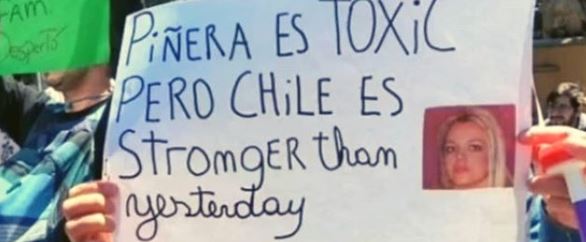 FAM.
DESPERTÓ
PIÑERA ES TOXiC
PERO CHiLE ES
StronGER than
yesterday